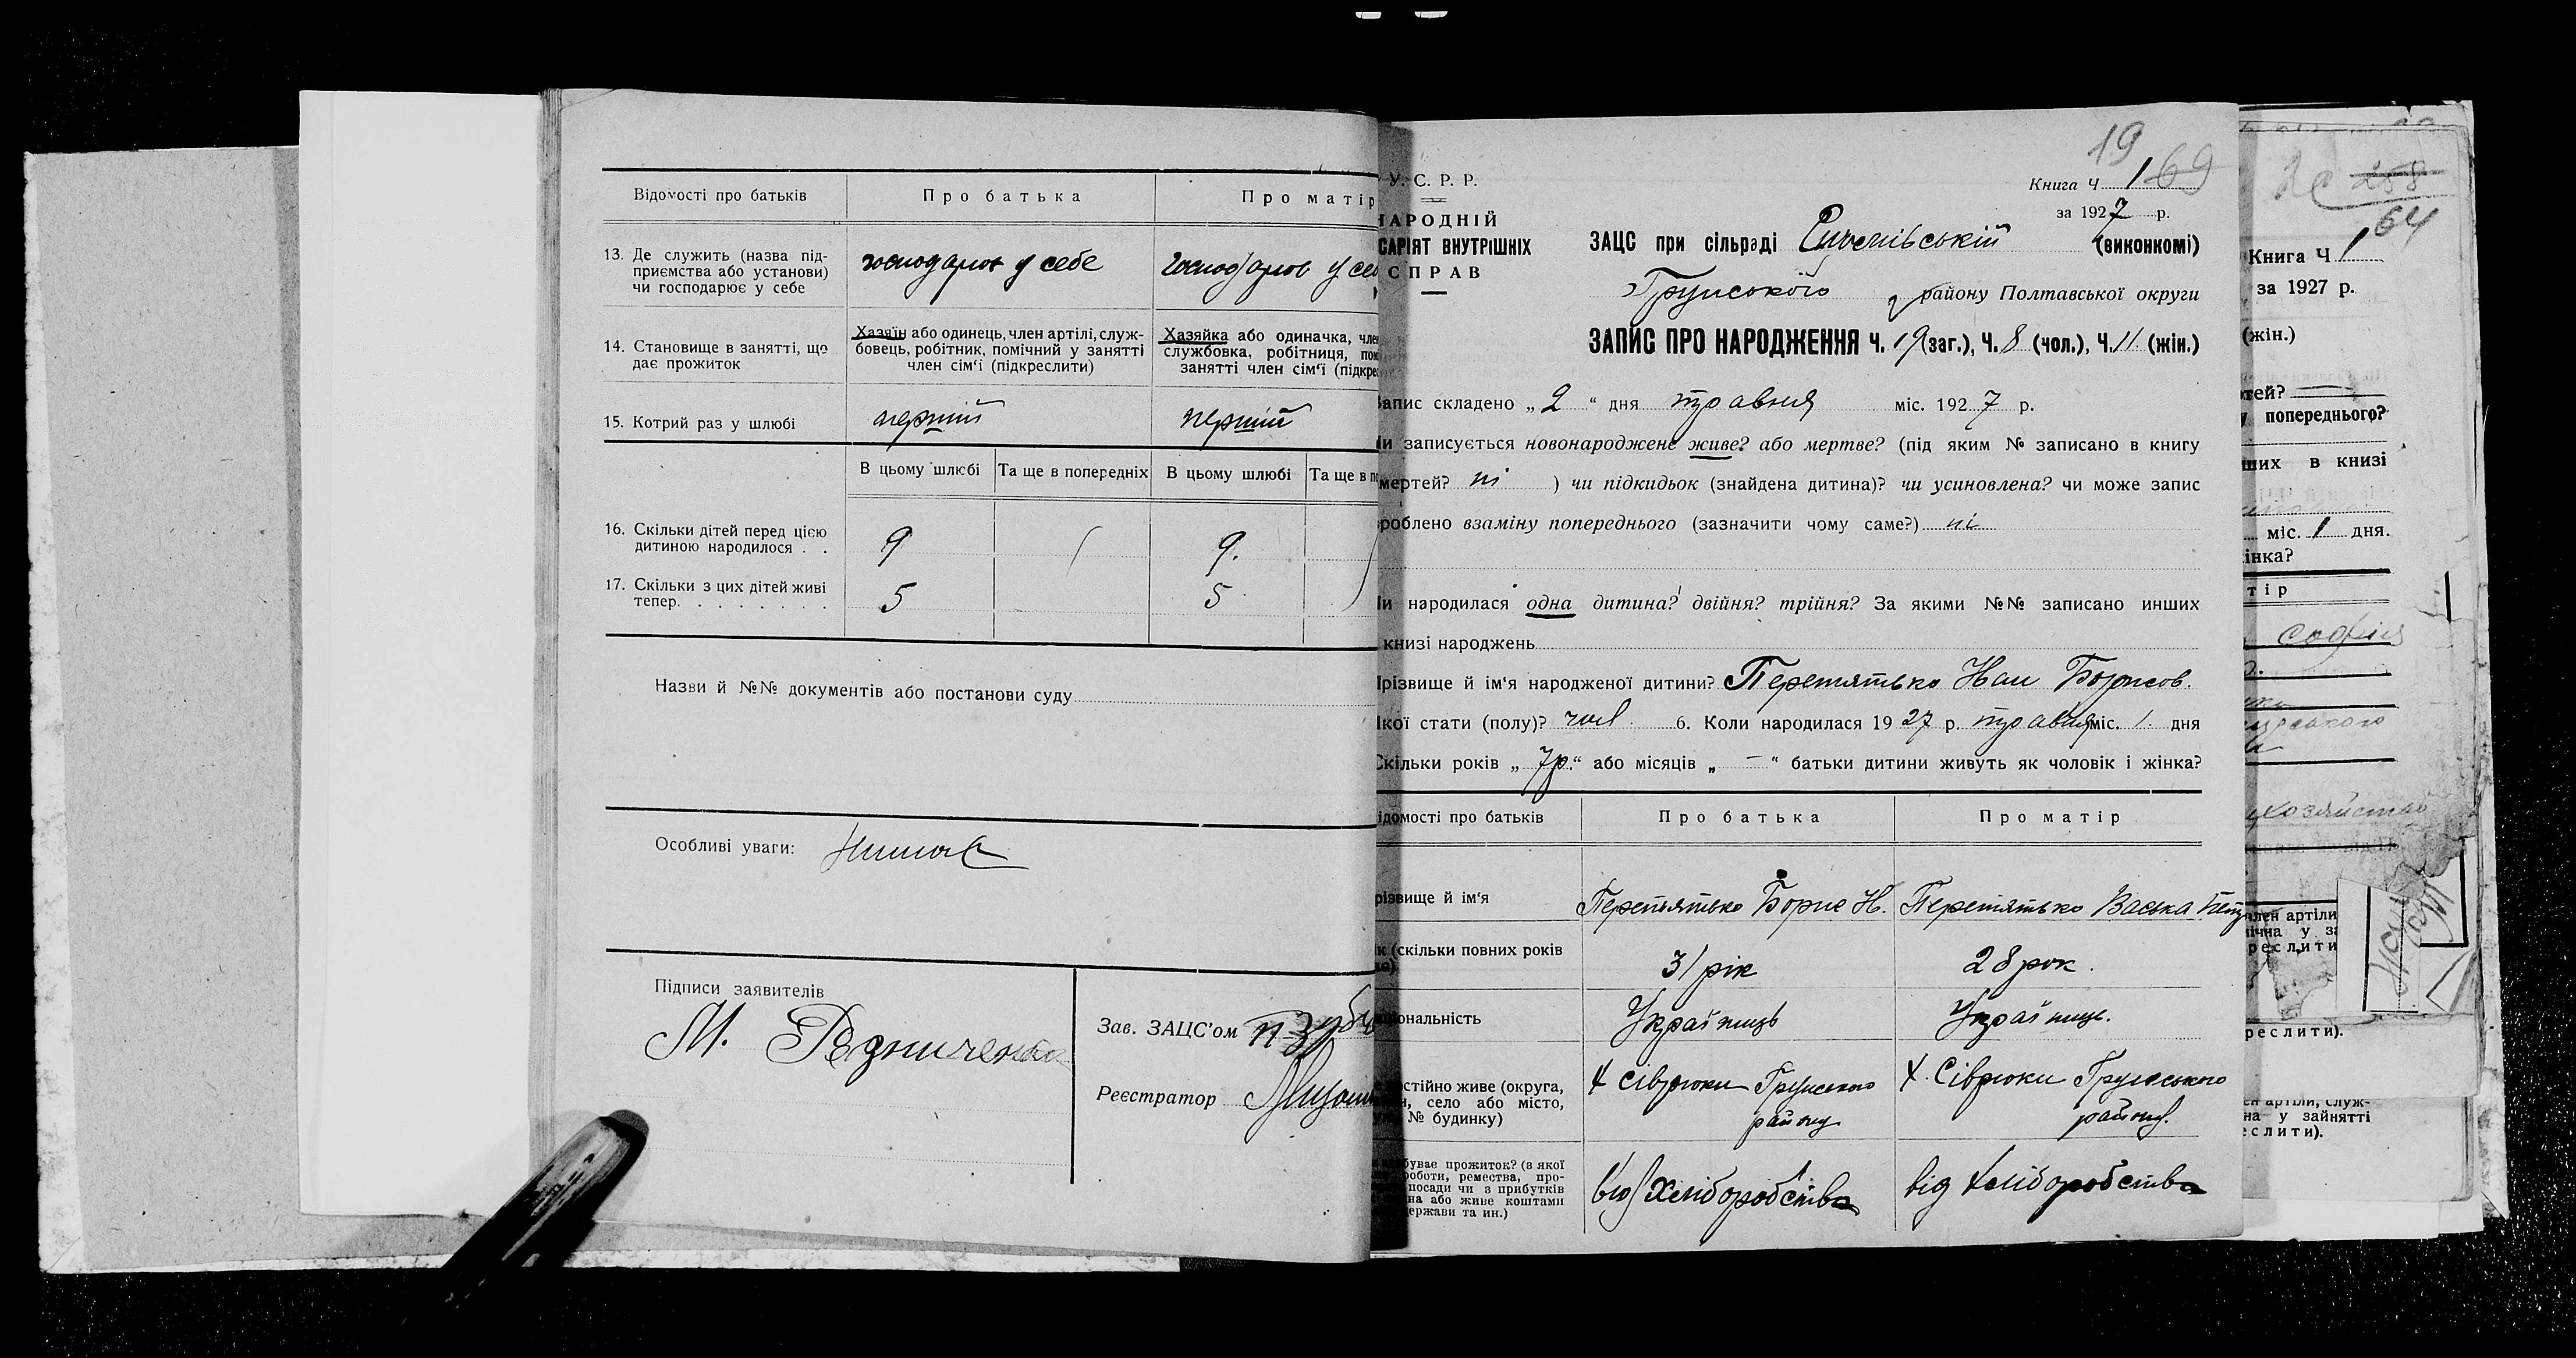 Відомості про батьків
Про батька
Про матір
13. Де служить (назва під-
приємства або установи)
чи господарює у себе
господарює у себе
господарює у себ
14. Становище в занятті, що
дає прожиток
Хазяїн або одинець, член артілі, служ-
бовець, робітник, помічний у занятті
член сім'ї (підкреслити)
Хазяйка або одиначка, член
службовка, робітниця, пом
занятті член сім'ї (підкре
15. Котрий раз у шлюбі
перший
перший
В цьому шлюбі
Та ще в попередніх
В цьому шлюбі
Та ще в по
16. Скільки дітей перед цією
дитиною народилося . .
9
9.
17. Скільки з цих дітей живі
тепер. . . . . . . .
5
5
Назви й №№ документів або постанови суду
Особливі уваги:
Підписи заявителів
М. Редниченко
Зав. ЗАЦС'ом
Реєстратор
19
У. С. Р. Р.
НАРОДНІЙ
САРІЯТ ВНУТРІШНІХ
СПРАВ
Книга Ч 1 69
за 1927 р.
ЗАЦС при сільраді (виконкомі)
Грунського району Полтавської округи
ЗАПИС ПРО НАРОДЖЕННЯ Ч. 19 (заг.), Ч. 8 (чол.), Ч. 11 (жін.)
Запис складено „ 2 “ дня травня міс. 1927 р.
Чи записується новонароджене живе? або мертве? (під яким № записано в книгу
смертей? ні ) чи підкидьок (знайдена дитина)? чи усиновлена? чи може запис
зроблено взаміну попереднього (зазначити чому саме?) ні
Чи народилася одна дитина? двійня? трійня? За якими №№ записано инших
книзі народжень
Прізвище й ім'я народженої дитини? Перетятько Иван Борисов.
Якої стати (полу)? чол. 6. Коли народилася 1927 р. травня міс. 1 дня
Скільки років „ 7р. “ або місяців „ — “ батьки дитини живуть як чоловік і жінка?
ідомості про батьків
Про батька
Про матір
різвище й ім'я
Перетятько Борис И.
Перетятько Васька
ік (скільки повних років
31 рік
28 рок.
ціональність
Українець
Українець.
остійно живе (округа,
н, село або місто,
№ будинку)
х Сіврюки Грунського
району
х. Сіврюки Грунського
району.
буває прожиток? (з якої
роботи, ремества, про-
посади чи з прибутків
на або живе коштами
ержави та ин.)
від хліборобства
від хліборобства
258
64
Книга Ч 1
за 1927 р.
(жін.)
ртей?
попереднього?
нших в книзі
міс. 1 дня.
інка?
тір
София
член артіли
ічна у за
реслити
реслити).
ен артіли, служ-
на у зайнятті
еслити).